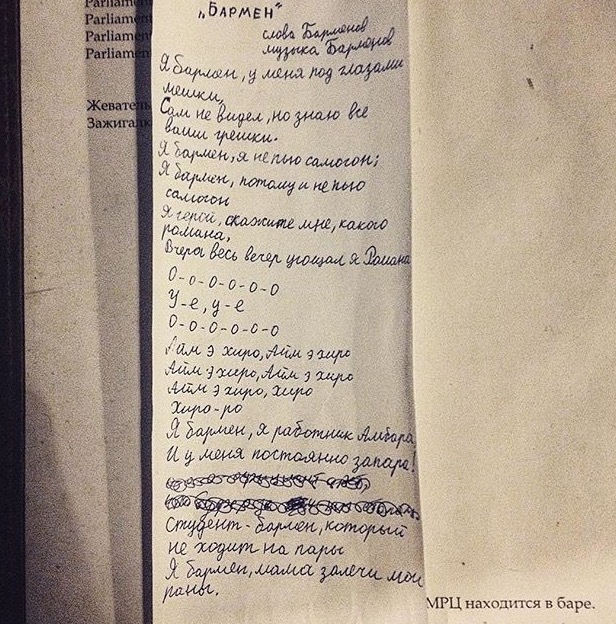 Parliament
Parliament
Parliamen
Parliament
Жеватель
Зажигалк
„БАРМЕН“
слова Барменов
музыка Барменов
Я бармен, у меня под глазами
мешки,
Сам не видел, но знаю все
ваши грешки.
Я бармен, я не пью самогон;
Я бармен, потому и не пью
самогон
Я герой, скажите мне, какого
романа,
Вчера весь вечер угощал я Романа
О-о-о-о-о-о
У-е, у-е
О-о-о-о-о-о
Айм э хиро, Айм э хиро
Айм э хиро, Айм э хиро
Айм э хиро, хиро
Хиро-ро
Я бармен, я работник Амбара
И у меня постоянно запара!
Студент-бармен, который
не ходит на пары
Я бармен, мама залечи мои
раны.
МРЦ находится в баре.